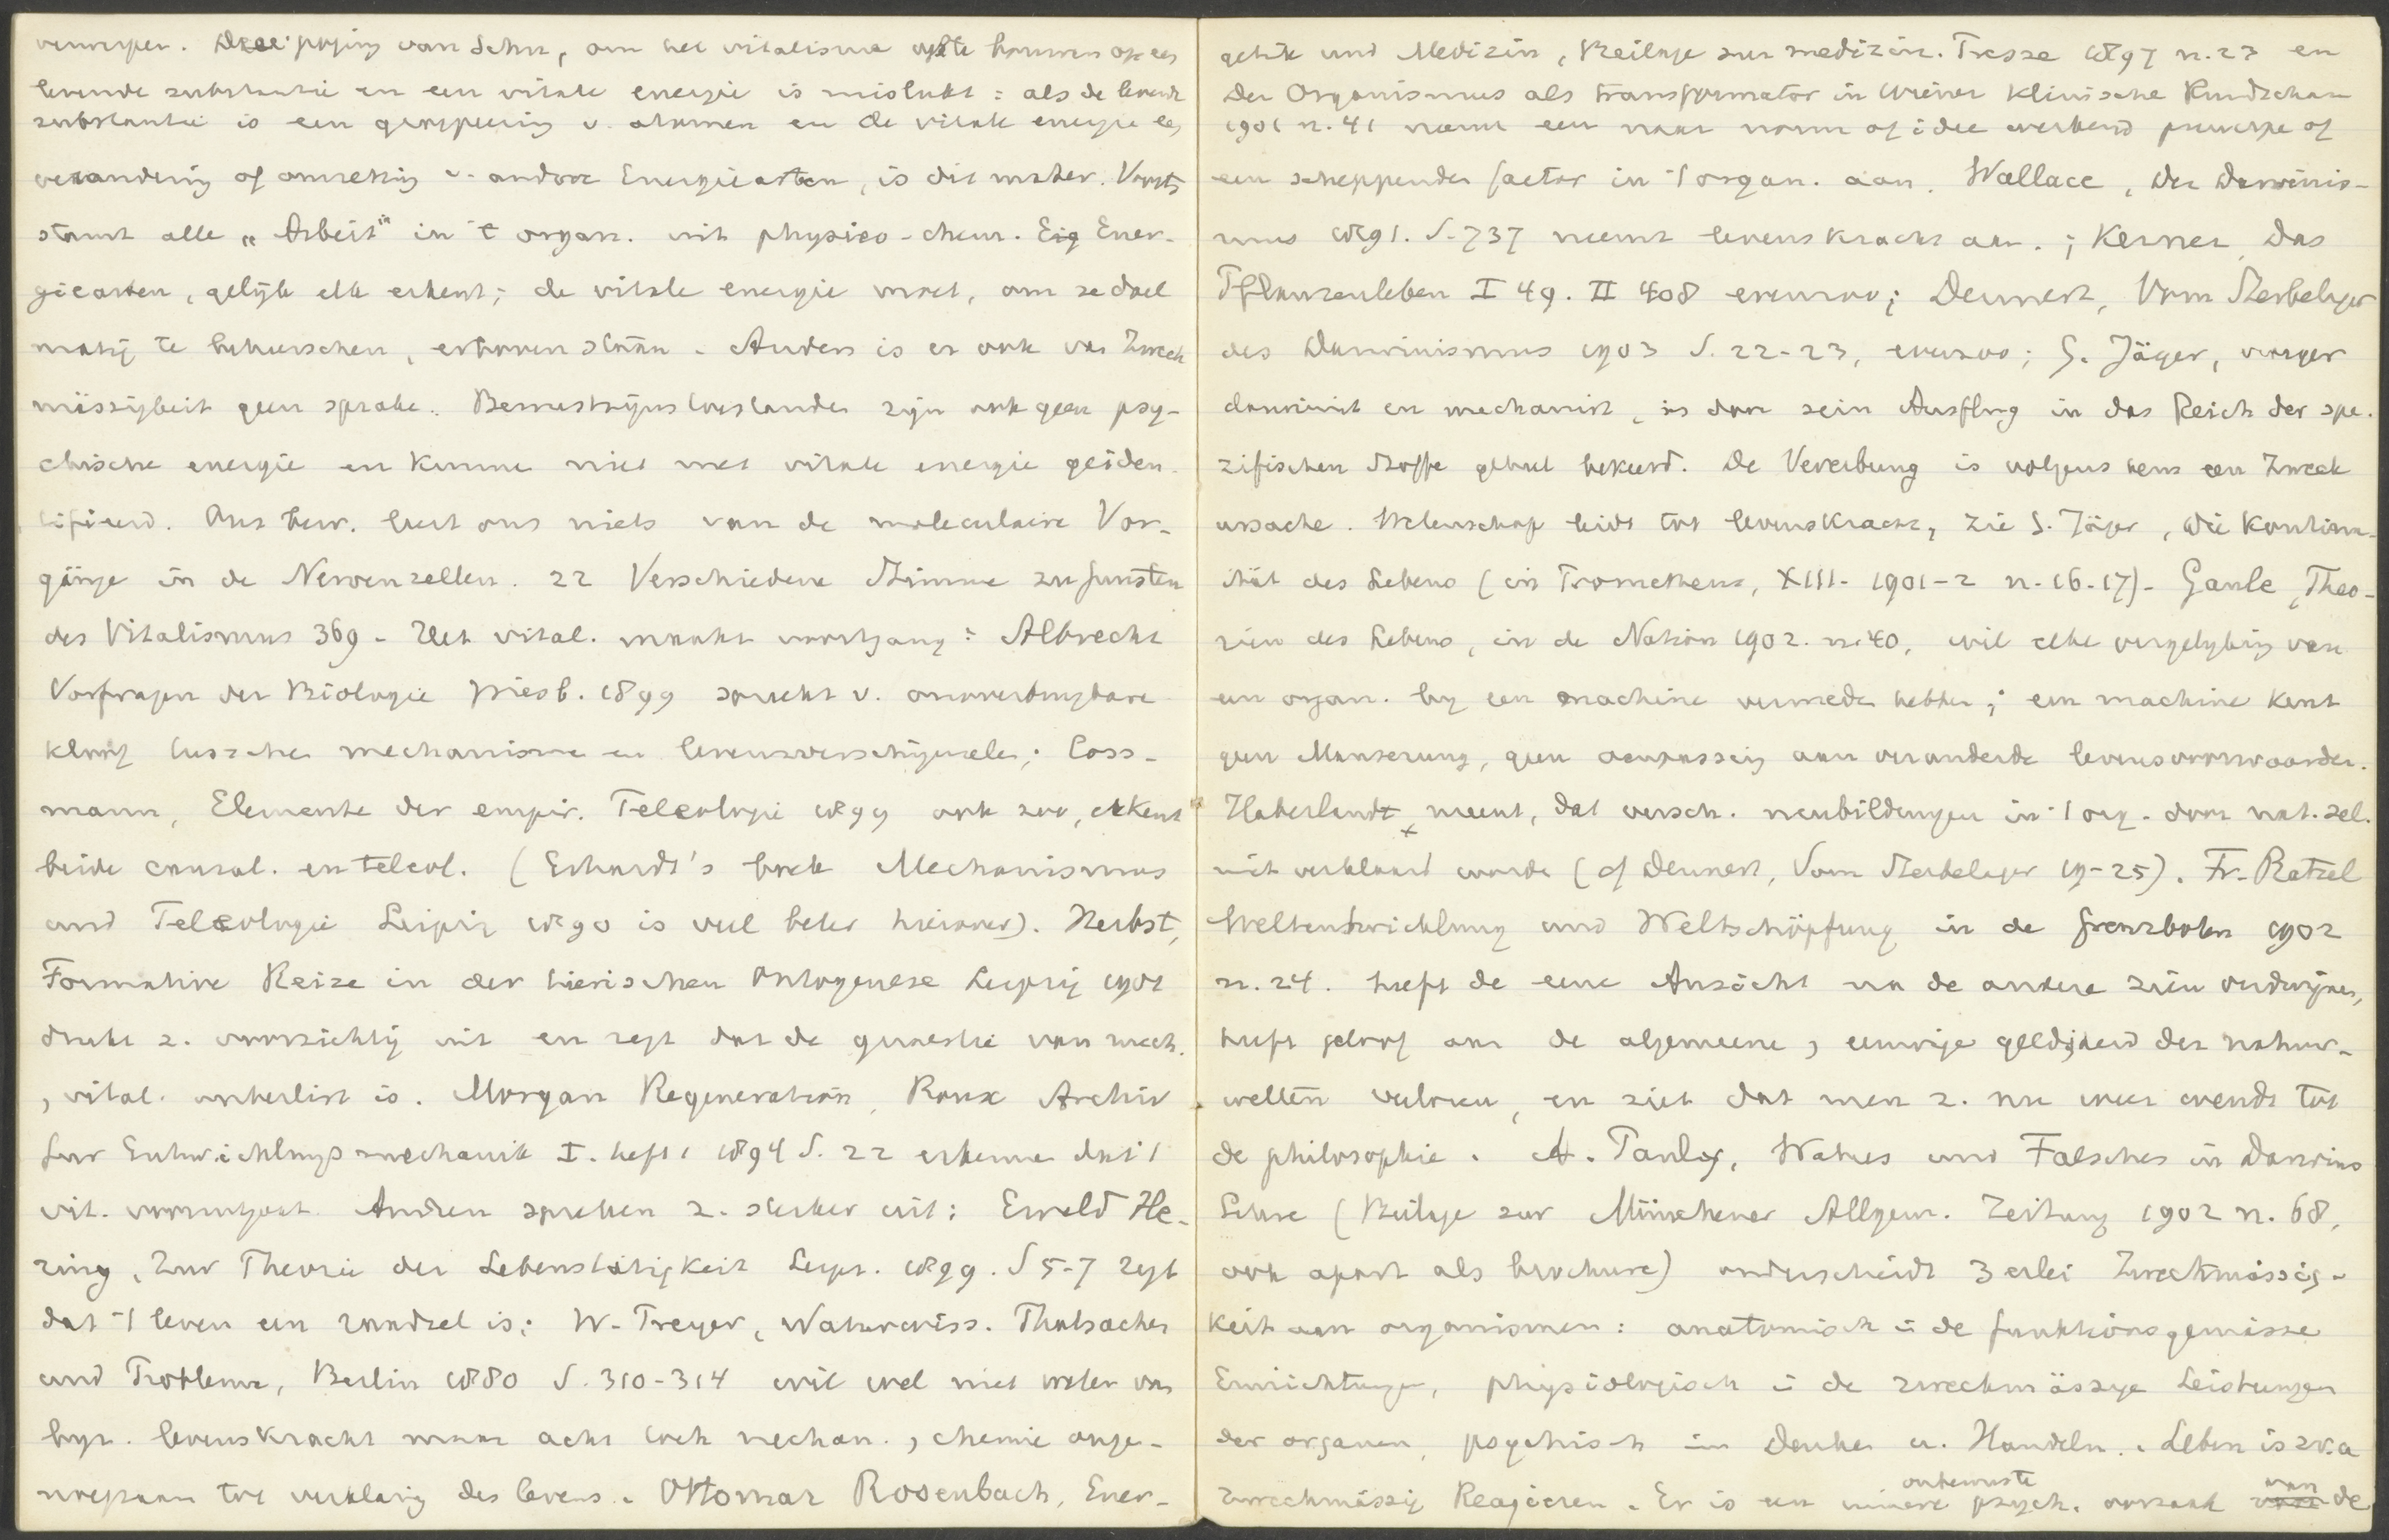 verwerpen. Deze poging van Schn, om het vitalisme op te bouwen op een
levende substantie en een vitale energie is mislukt: als de levende
substantie is een groepeering v. atomen en de vitale energie een
verandering of omzetting v. andere Energiearten, is dit mater. Voorts
stamt alle „Arbeit" in 't organ. uit physico-chem. Eig Ener-
giearten, gelijk elk erkent; de vitale energie moet, om ze doel
matig te beheerschen, erboven staan. Anders is er ook van Zweck
mässigkeit geen sprake. Bewustzijnstoestanden zijn ook geen psy-
chische energie en kunnen niet met vitale energie geiden-
tifieerd. Ons bew. leert ons niets van de moleculaire Vor-
gänge in de Nervenzellen. 22 Verschiedene Stimme zu Gunsten
des Vitalismus 369 - Het vital. maakt voortgang: Albrecht
Vorfragen der Biologie Wiesb. 1899 spreekt v. onoverbrugbare
kloof tusschen mechanisme en levensverschijnselen; Coss-
mann, Elemente der empir. Teleologie 1899 ook zoo, erkent
beide causal. en teleol. (Erhardt's boek Mechanismus
und Teleologie Leipzig 1890 is veel beter hierover). Herbst,
Formative Reize in der tierischen Ontogenese Leipzig 1901
drukt z. voorzichtig uit en zegt dat de quaestie van mech.
, vital. unterlist is. Morgan Regeneration, Roux Archiv
fur Entwicklungsmechanik I. heft 1 1894 S. 22 erkennen dat 't
vit. vooruitgaat. Andren spreken z. sterker uit: Ewald He-
ring, Zur Theorie der Lebenstätigkeit Leipz. 1899. S 5-7 zegt
dat 't leven een raadsel is; W. Preyer, Naturwiss. Thatsachen
und Probleme, Berlin 1880 S. 310-314 wil wel niet weten van
hyp. levenskracht maar acht toch mechan., chemie onge-
noegzaam tot verklaring des levens. Ottomar Rosenbach, Ener-
getik und Medizin, Beilage zur medizin. Presse 1897 n. 23 en
Der Organismus als transformator in Wiener Klinische Rundschau
1901 n. 41 neemt een naar norm of idee werkend principe of
een scheppenden factor in 't organ. aan. Wallace, Der Darwinis-
mus 1891. S. 737 neemt levenskracht aan.; Kerner, Das
Pflanzenleben I 49. II 408 evenzoo; Dennert, Vom Sterbelager
des Darwinismus 1903 S. 22-23, evenzoo; G. Jäger, vroeger
darwinist en mechanist, is door sein Ausflug in das Reich der spe-
zifischen Stoffe geheel bekeerd. De Vererbung is volgens hem een Zweck
ursache. Wetenschap leidt tot levenskracht, zie G. Jäger, Die Kontinu-
ität des Lebens (in Prometheus, XIII. 1901-2 n. 16-17). Gaule, Theo-
rien des Lebens, in de Nation 1902. n. 40, wil elke vergelijking van
een organ. bij een machine vermeden hebben; een machine kent
geen Mauserung, geen aanpassing aan veranderde levensvoorwaarden.
Haberlandt meent, dat versch. neubildungen in 't org. door nat. sel.
niet verklaard worden (cf Dennert, Vom Sterbelager 19-25). Fr. Ratzel
Weltentwicklung und Weltschöpfung in de Grenzboten 1902
n. 24. heeft de eene Ansicht na de andere zien verdwijnen,
heeft geloof aan de algemeene, eeuwige geldigheid der natuur-
wetten verloren, en ziet dat men z. nu weer wendt tot
de philosophie. A. Pauly, Wahres und Falsches in Darwins
Lehre (Beilage zur Münchener Allgem. Zeitung 1902 n. 68,
ook apart als brochure) onderscheidt 3 erlei Zweckmässig-
keit aan organismen: anatomisch i de funktionsgemässe
Einrichtungen, physiologisch i de zweckmässige Leistungen
der organen, psychisch im Denken u. Handeln. Leben is zv.a
zweckmässig Reagieren. Er is een innere onbewuste psych. oorzaak van de